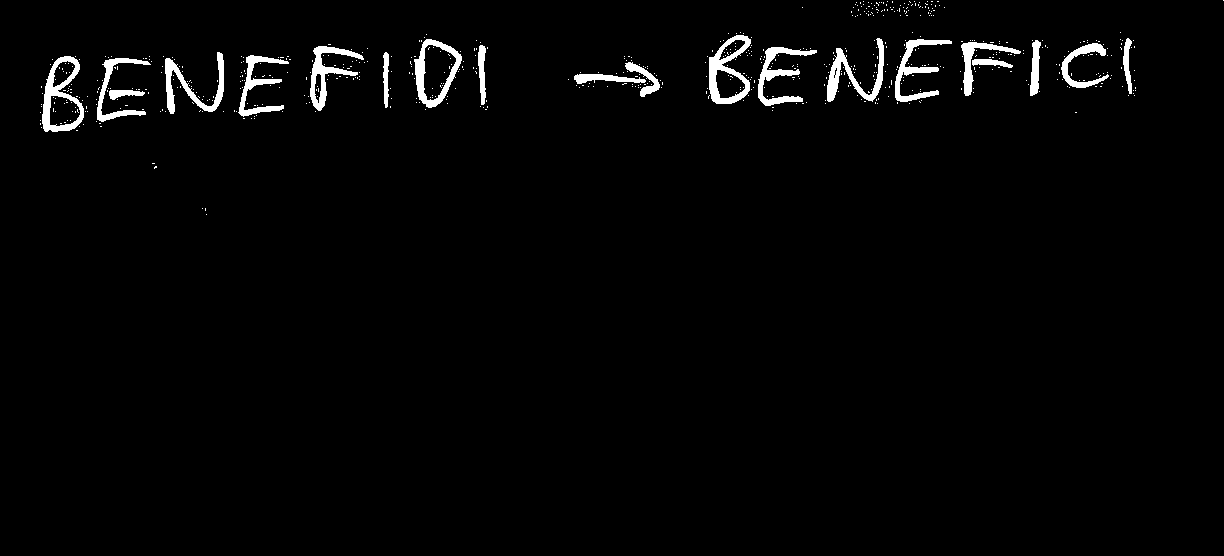 BENEFIDI → BENEFICI